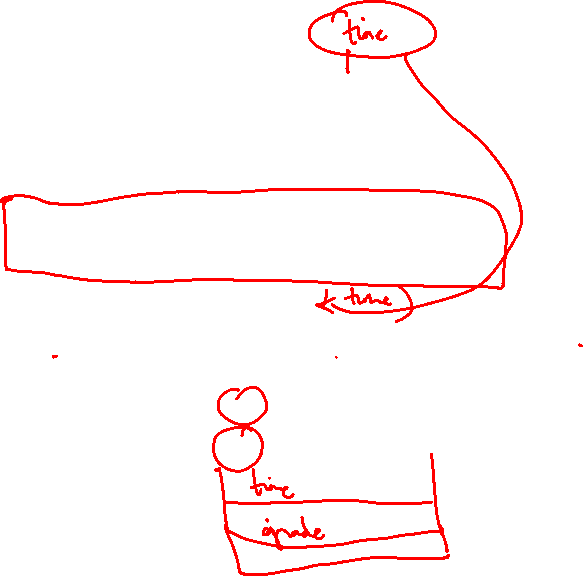 time
time
time
grade